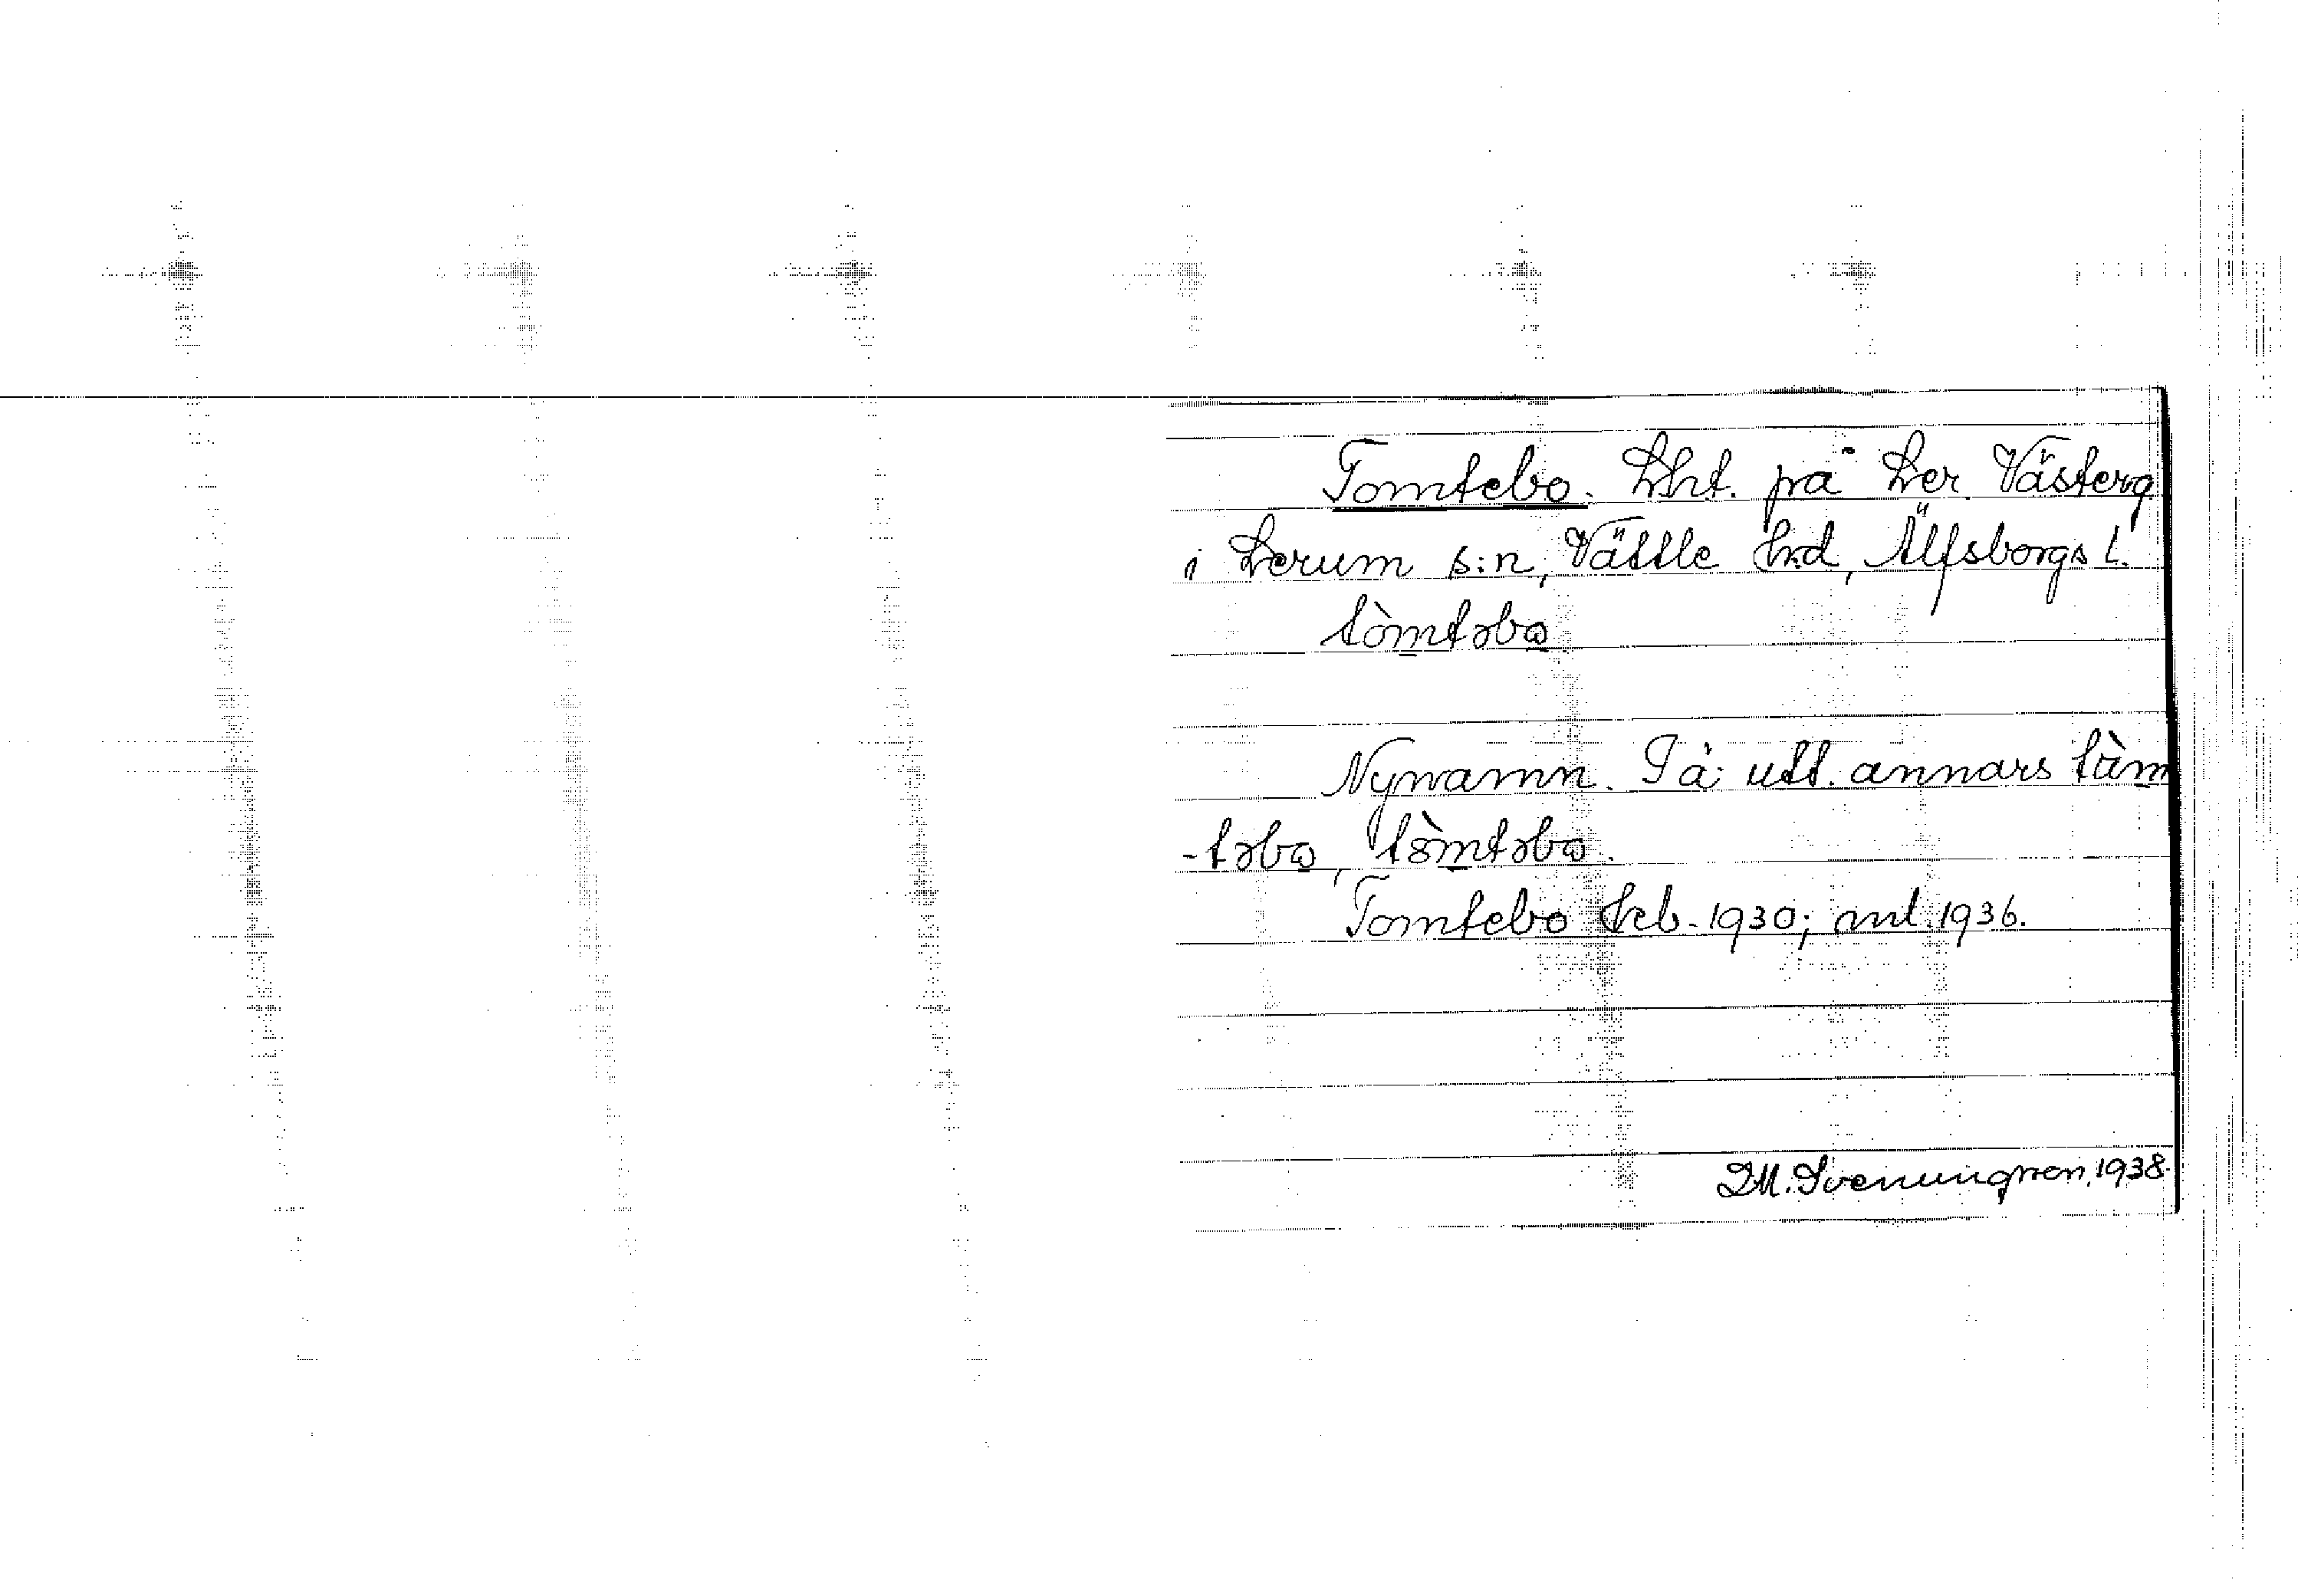 Tomtebo. Lht. på Ler. Västerg
i Lerum s:n, Vättle hd, Älfsborgs l.
tòmtəbɷ
Nynamn. På utt. annars tàm
-təbɷ, tòmtəbɷ.
Tomtebo 1930; 1936.
D.M. Svenungsson, 1938.